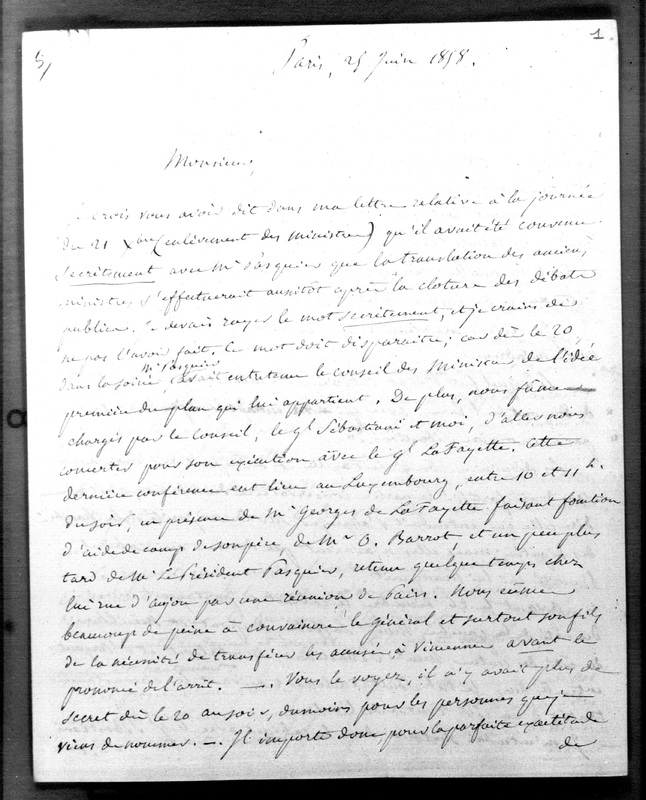 5/
1
Paris, 25 Juin 1858.
Monsieur,
Je crois vous avoir dit dans ma lettre relative à la journée
du 21 Xbre (enlèvement des ministres) qu'il avait été convenu
secrètement avec Mr Pasquier que la translation des anciens
ministres s'effectuerait aussitôt après la cloture des débats
publics. Je devais rayer le mot secrètement, et je crains de
ne pas l'avoir fait. Ce mot doit disparaître; car dès le 20,
dans la soirée, Mr Pasquier avait entretenu le conseil des Ministres de l'idée
première du plan qui lui appartient. De plus, nous fûmes
chargés par le conseil, le gl Sébastiani et moi, d'aller nous
concerter pour son exécution avec le gl La Fayette. Cette
dernière conférence eut lieu au Luxembourg, entre 10 et 11 h.
du soir, en présence de Mr Georges de La Fayette faisant fonction
d'aide de camp de son père, de Mr O. Barrot et un peu plus
tard de Mr Le Président Pasquier, retenu quelque temps chez
lui rue d'anjou par une réunion de Pairs. Nous eûmes
beaucoup de peine à convaincre le général et surtout son fils
de la nécessité de transférer les accusés à Vincennes avant le
prononcé de l'arrêt. —. Vous le voyez, il n'y avait plus de
secret dès le 20 au soir, du moins pour les personnes que je
viens de nommer. —. Il importe donc pour la parfaite exactitude
de